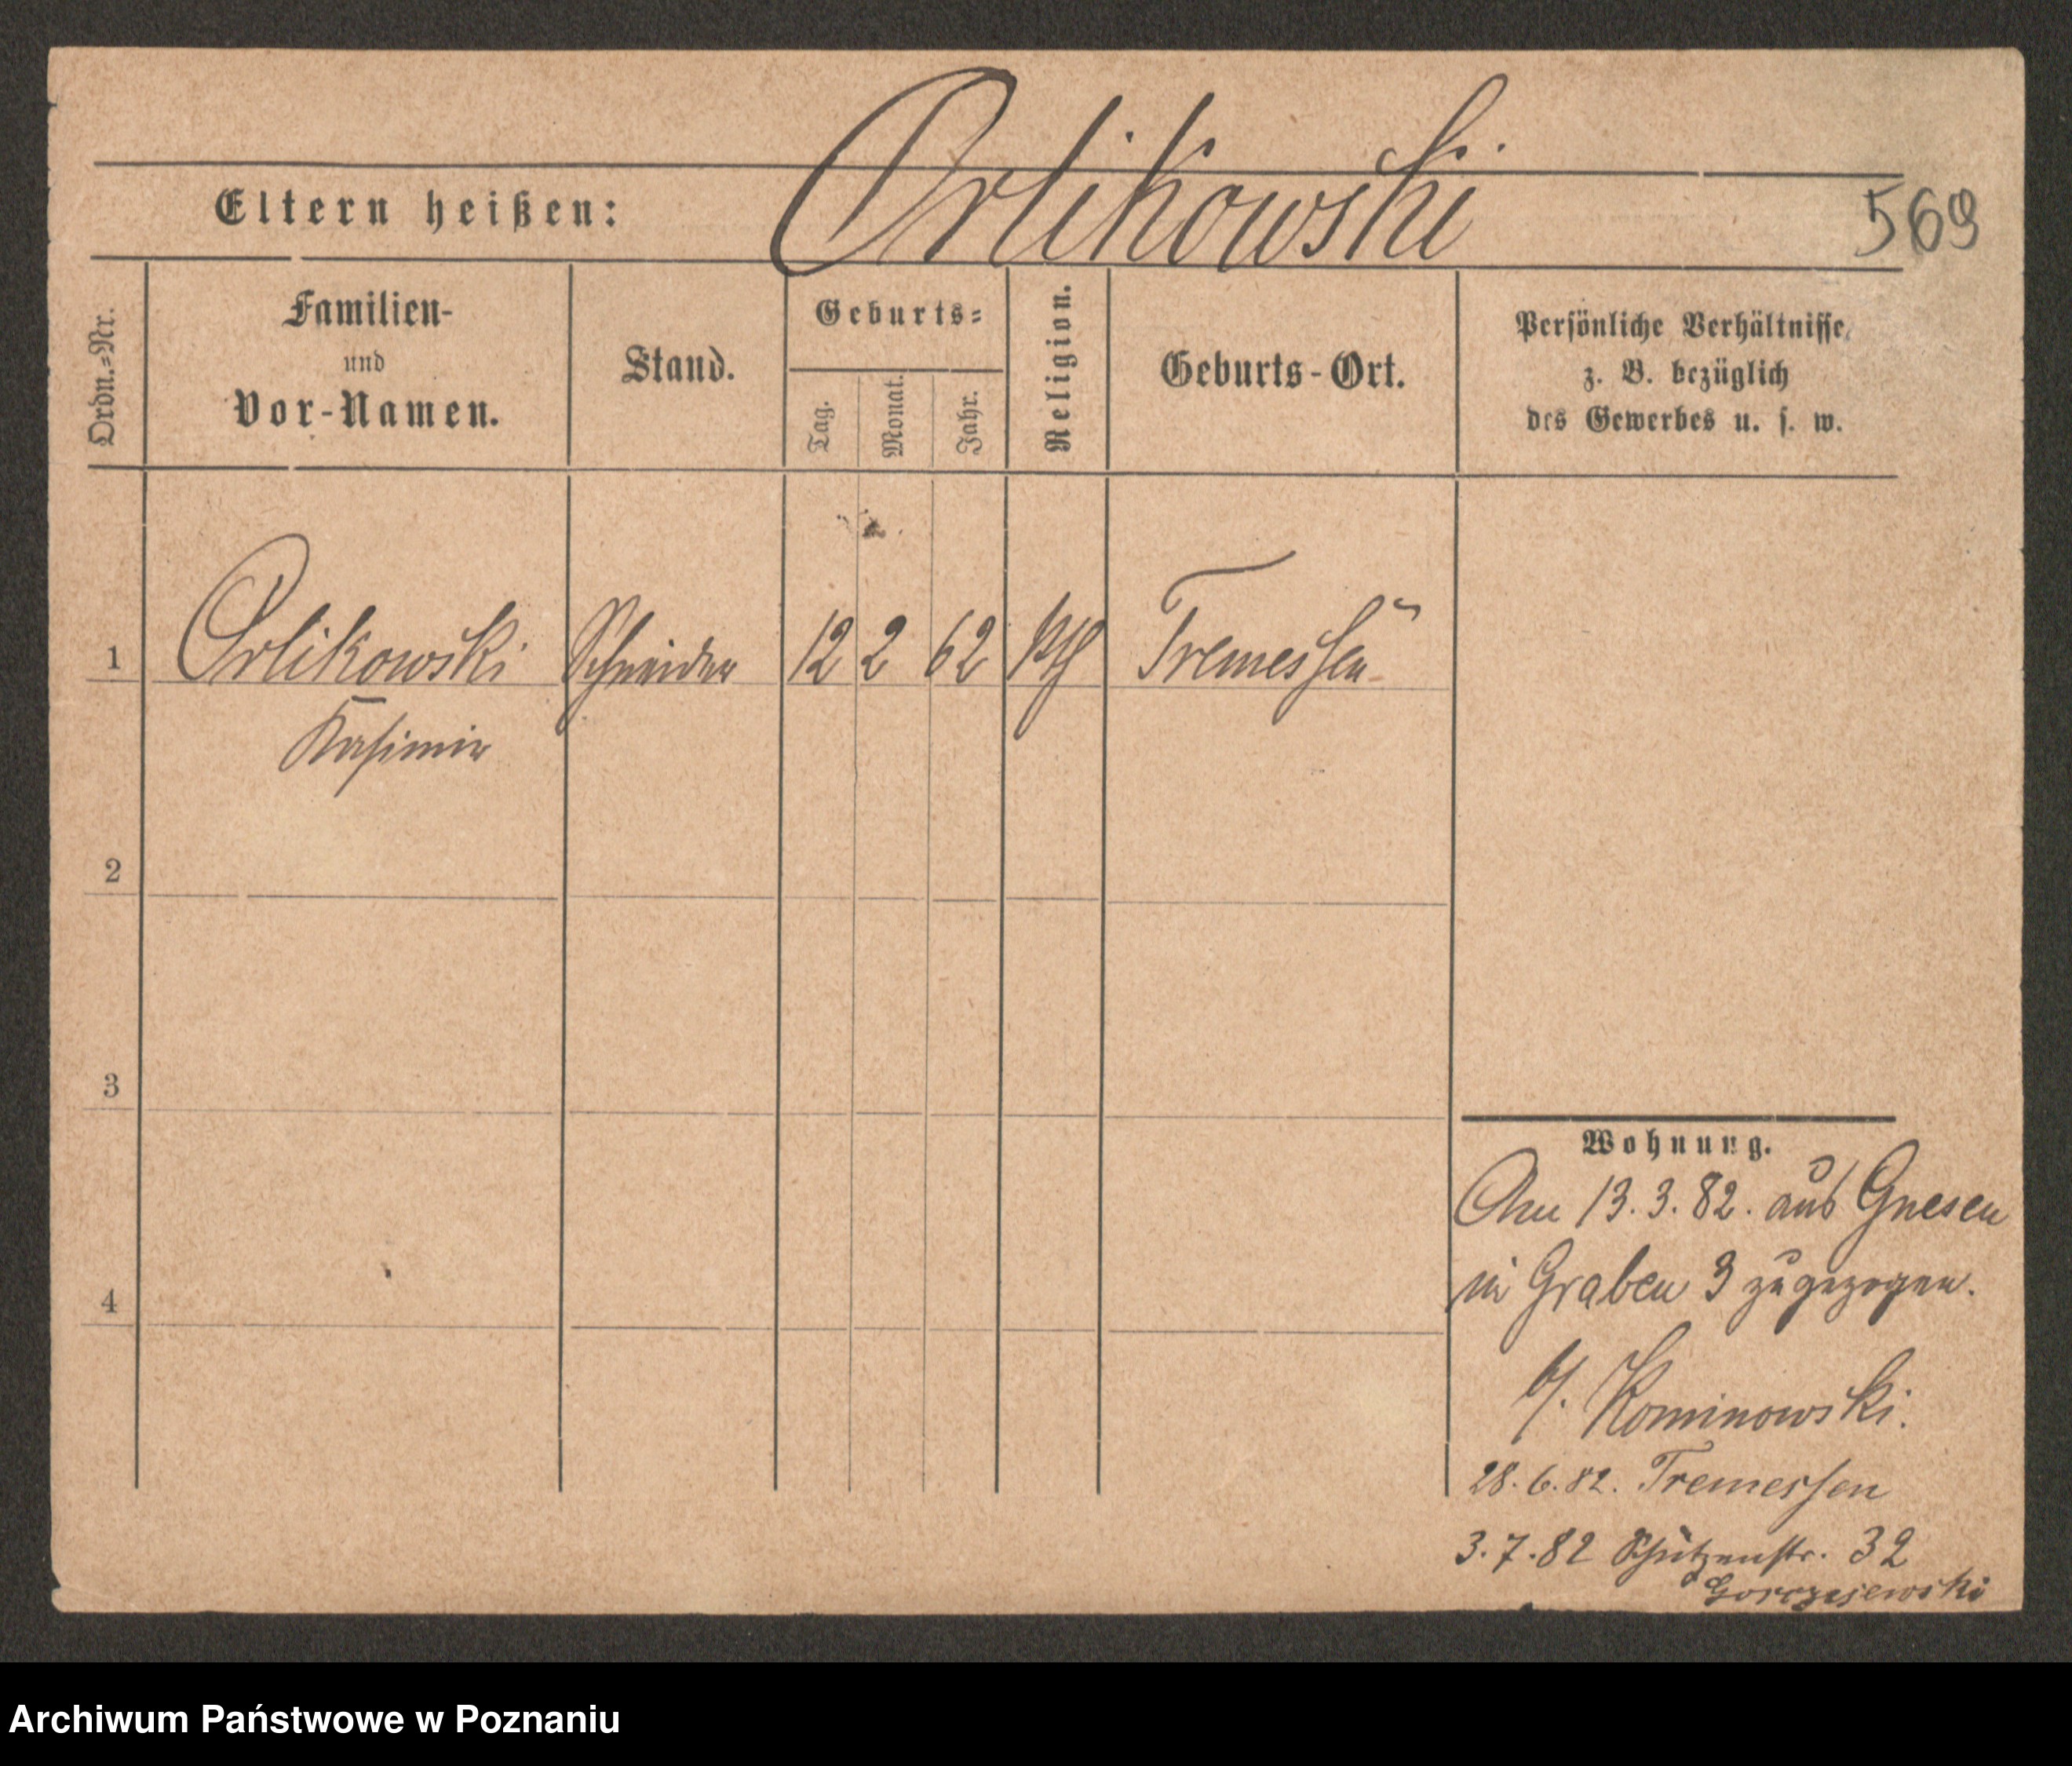 Orlikowski
Eltern heißen:
569
Ordn.=Nr.
Familien-
und
Vor-Namen.
Stand.
Geburts=
Tag.
Monat.
Jahr.
Religion.
Geburts-Ort.
Persönliche Verhältnisse,
z. B. bezüglich
des Gewerbes u. s. w.
1 Orlikowski Schneider 12 2 62 kth Tremessen
Kasimir
2
3
4
Wohnung.
Am 13.3.82. aus Gnesen
in Graben 3 zugezogen.
b/. Kominowski.
28.6.82. Tremessen
3.7.82 Schützenstr. 32
Gorczejewski
Archiwum Państwowe w Poznaniu